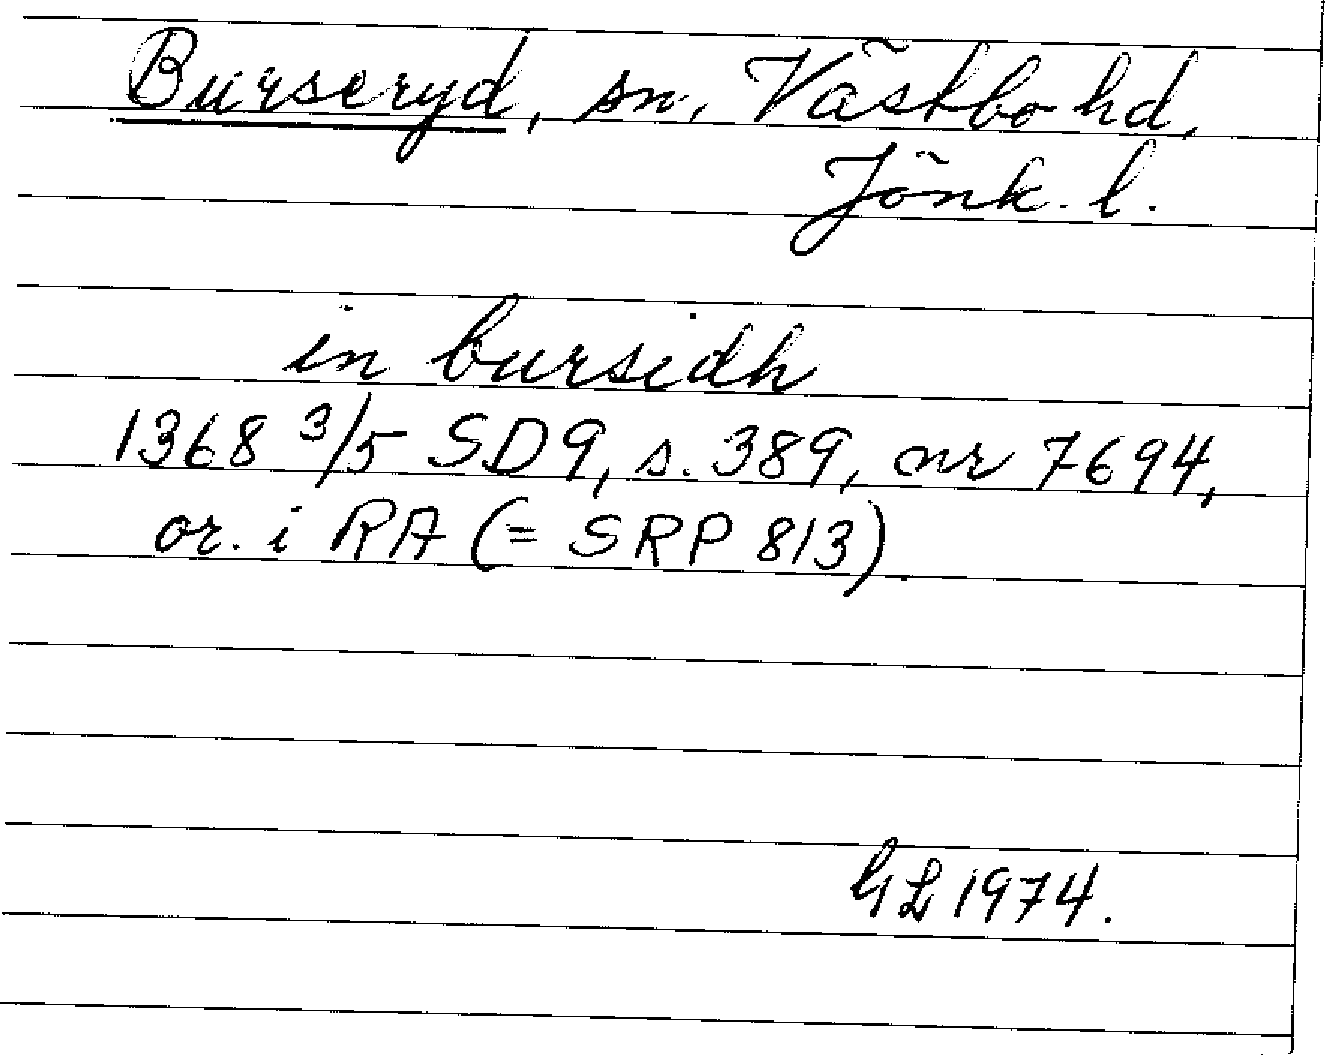 Burseryd, sn, Västbo hd,
Jönk. l.
in bursidh
1368 3/5 SD9, s. 389, nr 7694,
or. i RA (= SRP 813)
GL 1974.